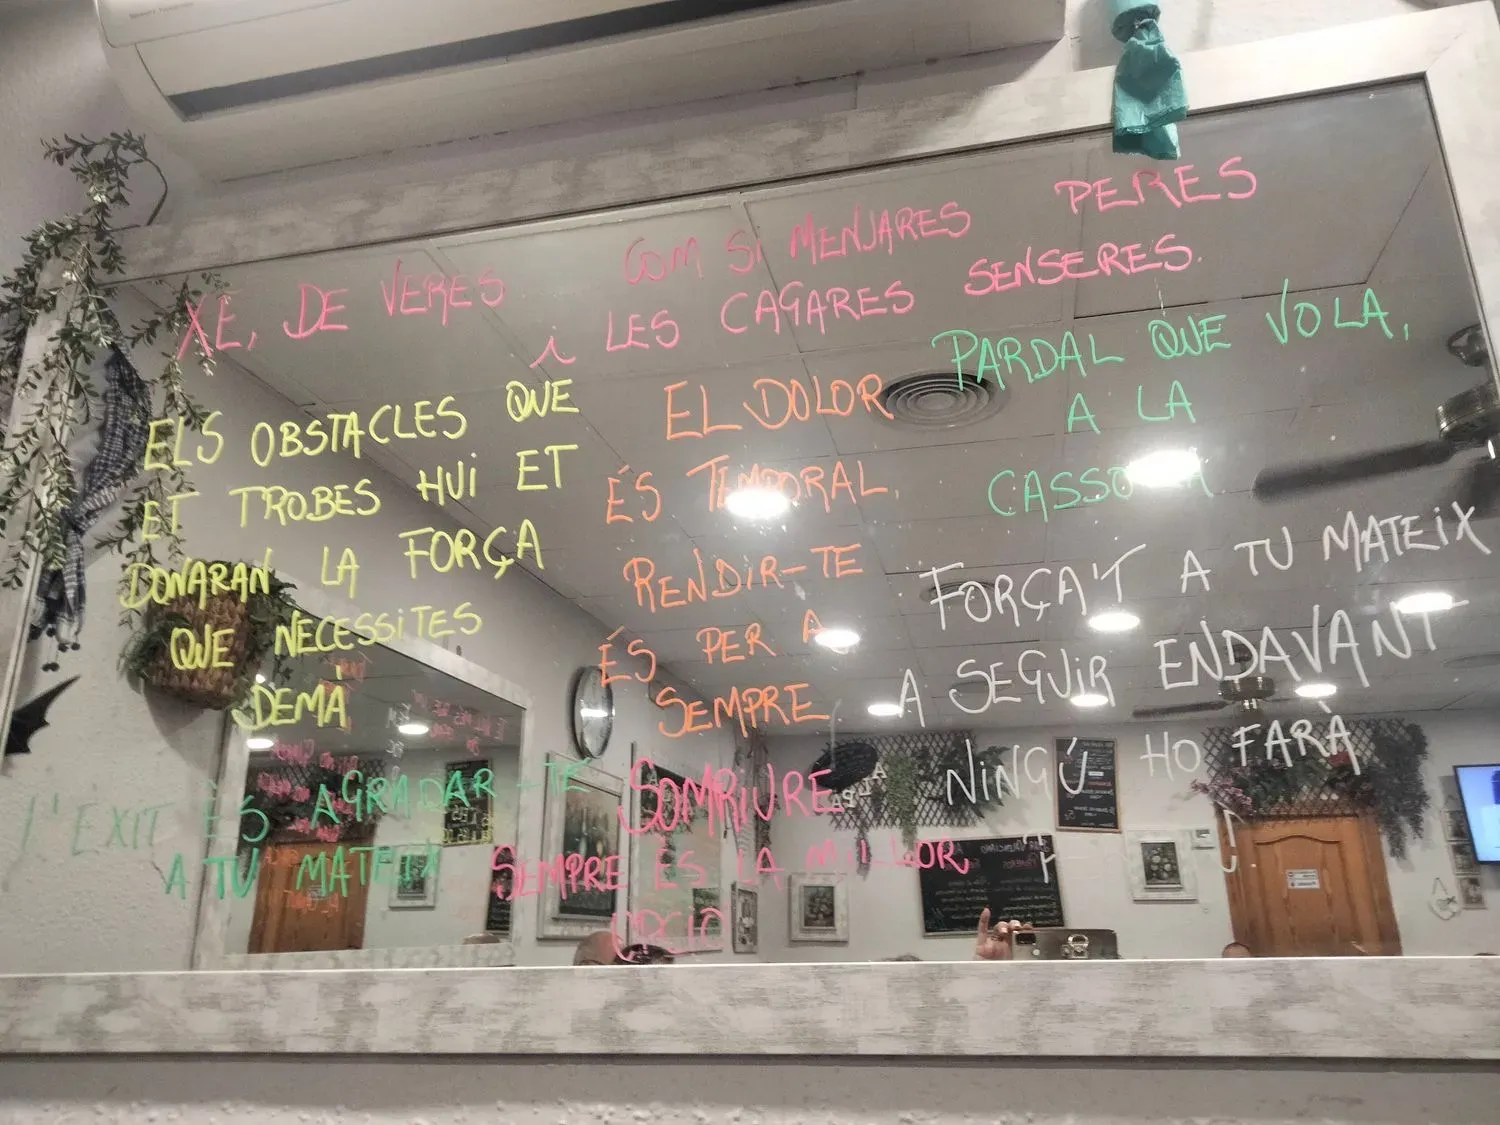 XE, DE VERES
COM SI MENJARES PERES
i LES CAGARES SENSERES.
ELS OBSTACLES QUE
ET TROBES HUI ET
DONARAN LA FORÇA
QUE NECESSITES
DEMÀ
EL DOLOR
ÉS TEMPORAL,
RENDIR-TE
ÉS PER A
SEMPRE
PARDAL QUE VOLA,
A LA
CASSOLA
FORÇA'T A TU MATEIX
A SEGUIR ENDAVANT
NINGÚ HO FARÀ
P
L'ÈXIT ÉS AGRADAR-TE
A TU MATEIX
SOMRIURE
SEMPRE ÉS LA MILLOR
OPCIÓ